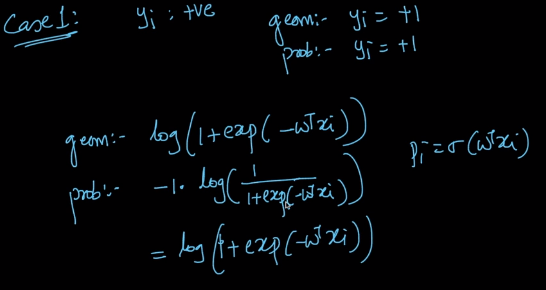 Case 1: yᵢ : +ve geom:- yᵢ = +1
prob:- yᵢ = +1
geom:- log(1+exp(-wᵀxᵢ))
pᵢ = σ(wᵀxᵢ)
prob:- -1. log(1/(1+exp(-wᵀxᵢ)))
= log(1+exp(-wᵀxᵢ))